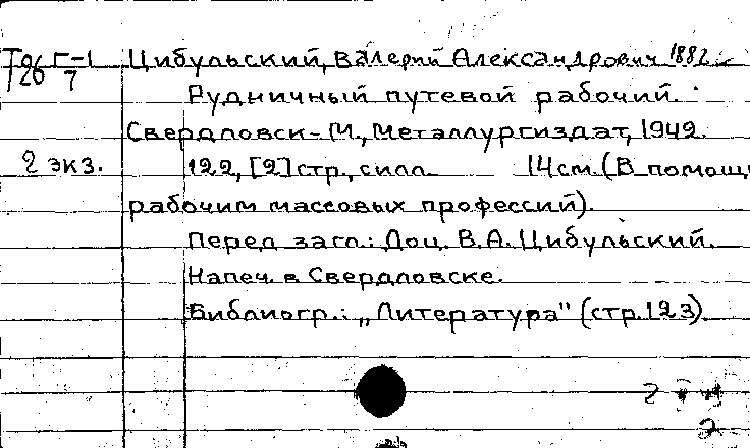 Цибульский, Валерий Александрович 1882–
Рудничный путевой рабочий.
Свердловск-М., Металлургиздат, 1942.
2 экз. 122, [2] стр., с илл. 14 см. (В помощь
рабочим массовых профессий).
Перед загл.: Доц. В.А. Цибульский.
Напеч. в Свердловске.
Библиогр.: „Литература" (стр. 123)
2
2